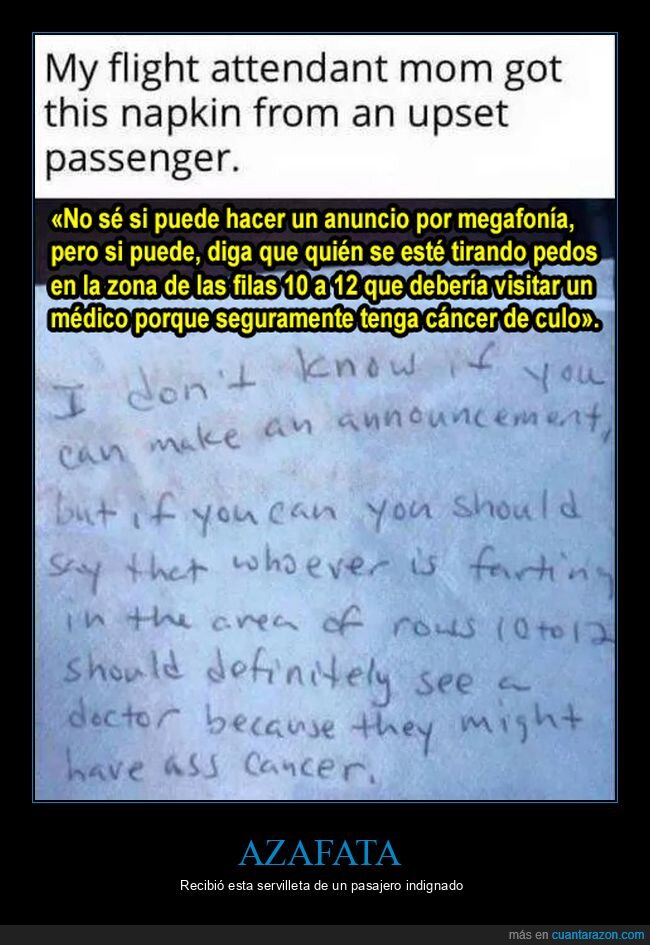 My flight attendant mom got
this napkin from an upset
passenger.
«No sé si puede hacer un anuncio por megafonía,
pero si puede, diga que quién se esté tirando pedos
en la zona de las filas 10 a 12 que debería visitar un
médico porque seguramente tenga cáncer de culo».
I don't know if you
can make an announcement,
but if you can you should
say that whoever is farting
in the area of rows 10 to 12
should definitely see a
doctor because they might
have ass cancer.
AZAFATA
Recibió esta servilleta de un pasajero indignado
más en cuantarazon.com